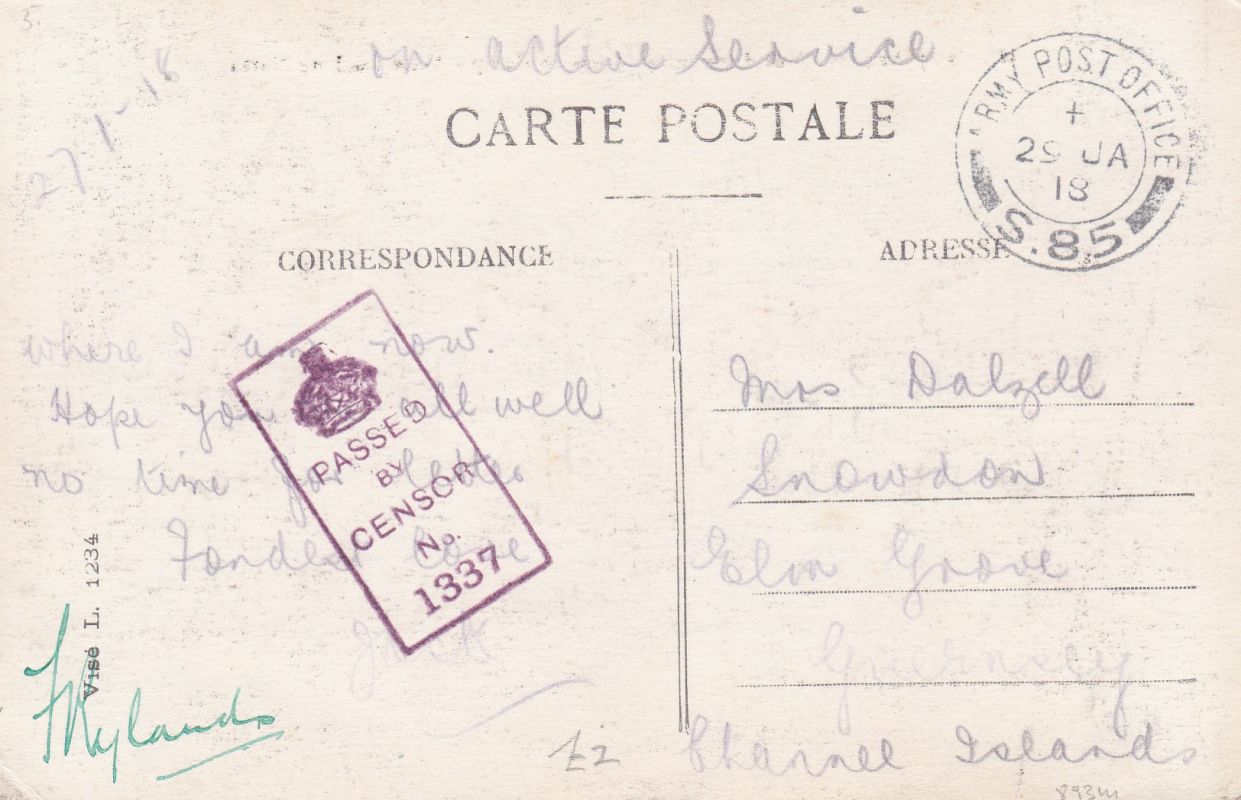 5.
on active Service
27-1-18
CARTE POSTALE
ARMY POST OFFICE
+
29 JA
18
S.85
CORRESPONDANCE
ADRESSE
where I am now.
Hope you all well
no time for letter
Fondest love
Jack
PASSED
BY
CENSOR
No.
1337
Visé L. 1234
Rylands
Mrs Dalzell
Snowdon
Elm Grove
Guernsey
Channel Islands
£2